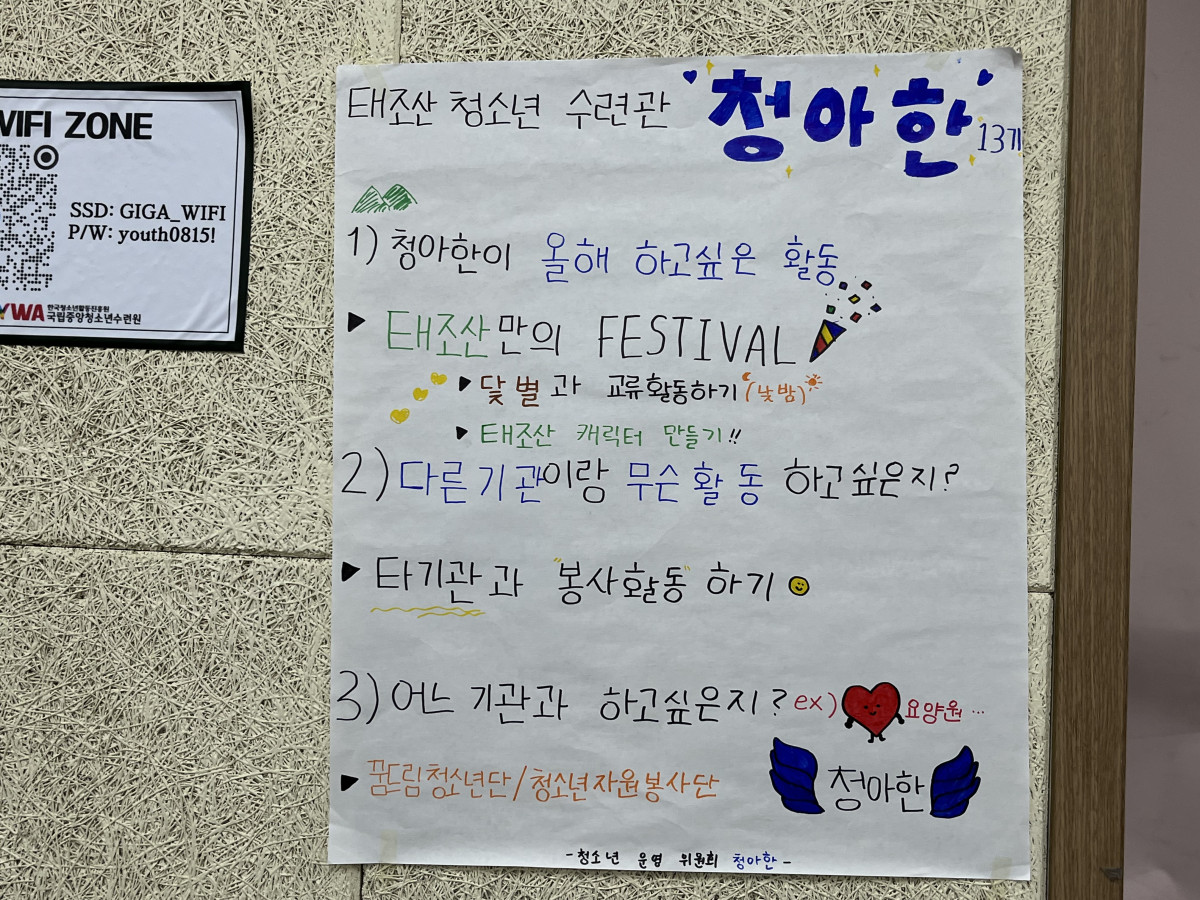 WIFI ZONE
SSD: GIGA_WIFI
P/W: youth0815!
YWA 한국청소년활동진흥원
국립중앙청소년수련원
태조산 청소년 수련관 '청아한' 13기
1) 청아한이 올해 하고싶은 활동
▶ 태조산만의 FESTIVAL
▶ 닻별과 교류활동하기 (낮밤)
▶ 태조산 캐릭터 만들기!!
2) 다른기관이랑 무슨활동 하고싶은지?
▶ 타기관과 "봉사활동" 하기
3) 어느 기관과 하고싶은지? ex) 요양원...
▶ 꿈드림청소년단/청소년자원봉사단
청아한
-청소년 운영 위원회 청아한-